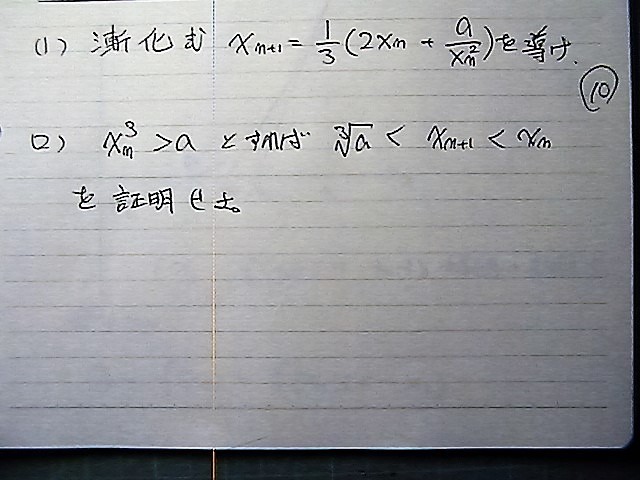 (1) 漸化式 x_{n+1} = \frac{1}{3}(2x_n + \frac{a}{x_n^2})を導け.
(10)
(2) x_n^3 > a とすれば \sqrt[3]{a} < x_{n+1} < x_n
を証明せよ。